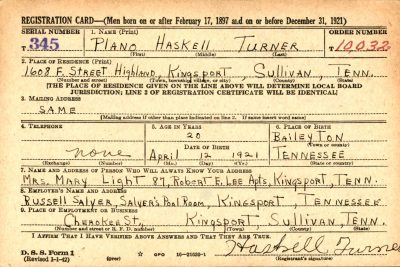 REGISTRATION CARD—(Men born on or after February 17, 1897 and on or before December 31, 1921)
SERIAL NUMBER 1. NAME (Print) ORDER NUMBER
T 345 PLANO HASKELL TURNER T 10032
(First) (Middle) (Last)
2. PLACE OF RESIDENCE (Print)
1608 F. STREET Highland, KINGSPORT, SULLIVAN, TENN.
(Number and street) (Town, township, village, or city) (County) (State)
[THE PLACE OF RESIDENCE GIVEN ON THE LINE ABOVE WILL DETERMINE LOCAL BOARD
JURISDICTION; LINE 2 OF REGISTRATION CERTIFICATE WILL BE IDENTICAL]
3. MAILING ADDRESS
SAME
[Mailing address if other than place indicated on line 2. If same insert word same]
4. TELEPHONE 5. AGE IN YEARS 6. PLACE OF BIRTH
20 BAILEYTON
none DATE OF BIRTH (Town or county)
April 12 1921 TENNESSEE
(Exchange) (Number) (Mo.) (Day) (Yr.) (State or country)
7. NAME AND ADDRESS OF PERSON WHO WILL ALWAYS KNOW YOUR ADDRESS
MRS. MARY LIGHT 87, ROBERT E. LEE APTS, KINGSPORT, TENN.
8. EMPLOYER'S NAME AND ADDRESS
RUSSELL SALYER, SALYER'S POOL ROOM, KINGSPORT, TENNESSEE
9. PLACE OF EMPLOYMENT OR BUSINESS
CHEROKEE ST., KINGSPORT, SULLIVAN, TENN.
(Number and street or R. F. D. number) (Town) (County) (State)
I AFFIRM THAT I HAVE VERIFIED ABOVE ANSWERS AND THAT THEY ARE TRUE.
Haskell Turner
D. S. S. Form 1
(Revised 1-1-42) (over) GPO 16—21630-1 (Registrant's signature)